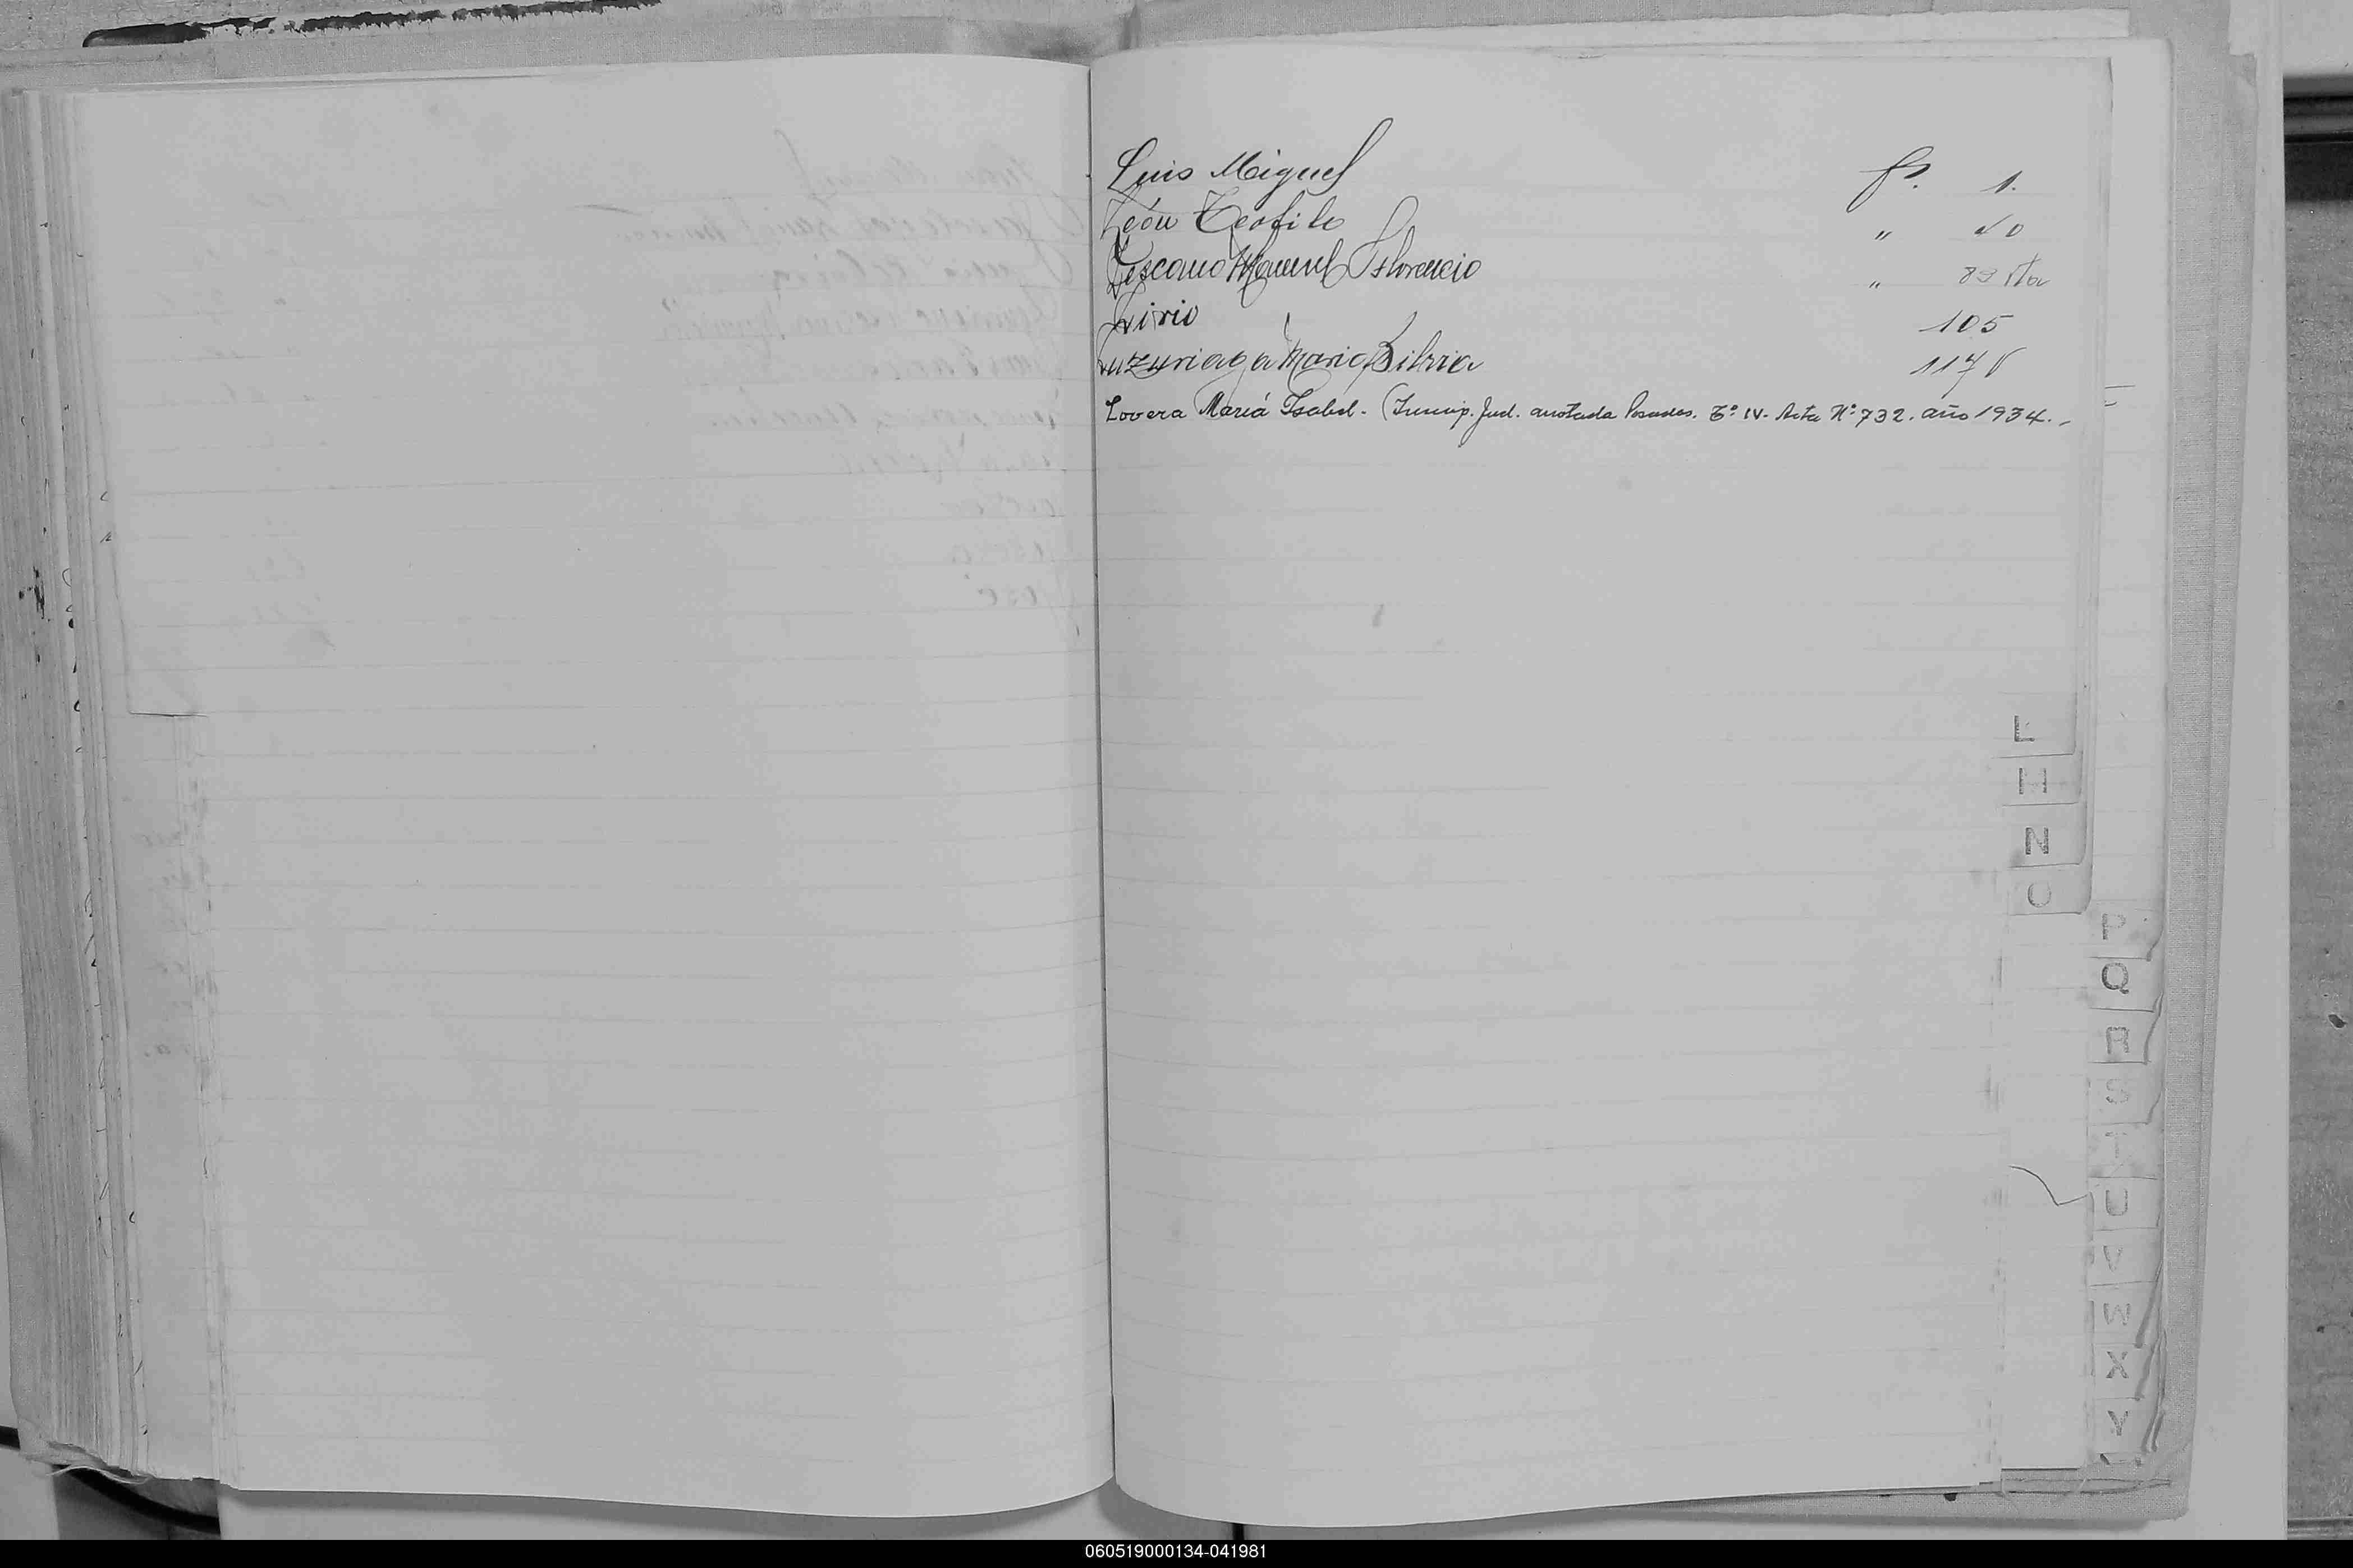 Luis Miguel fs. 1.
León Teofilo " 40
Lezcano Manuel Florencio " 89 vta
Lirio 105
Luzuriaga Maria Silvia 117 v
Lovera María Isabel. (Inscrip. Jud. anotada Posadas. Tº IV. Acta Nº 732. año 1934.-
L
H
N
O
P
Q
R
S
T
U
V
W
X
Y
060519000134-041981